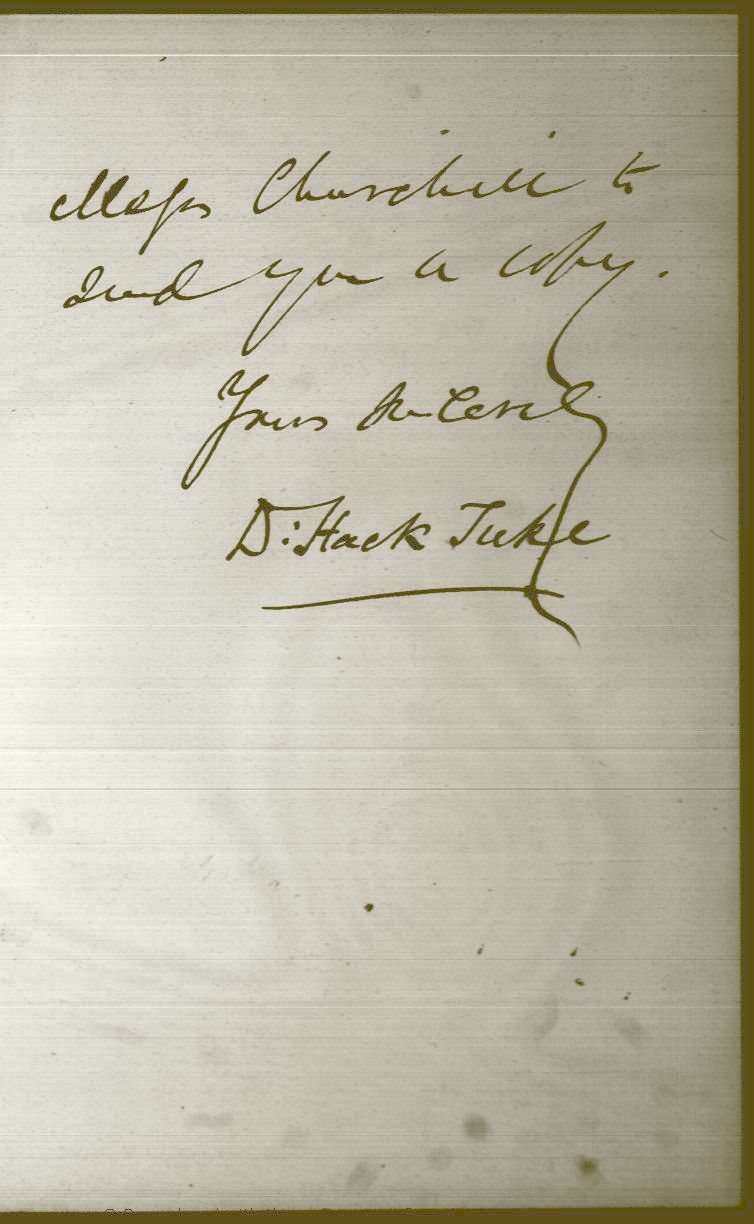 Messrs Churchill to
send you a copy.
Yours sincerely
D. Hack Tuke